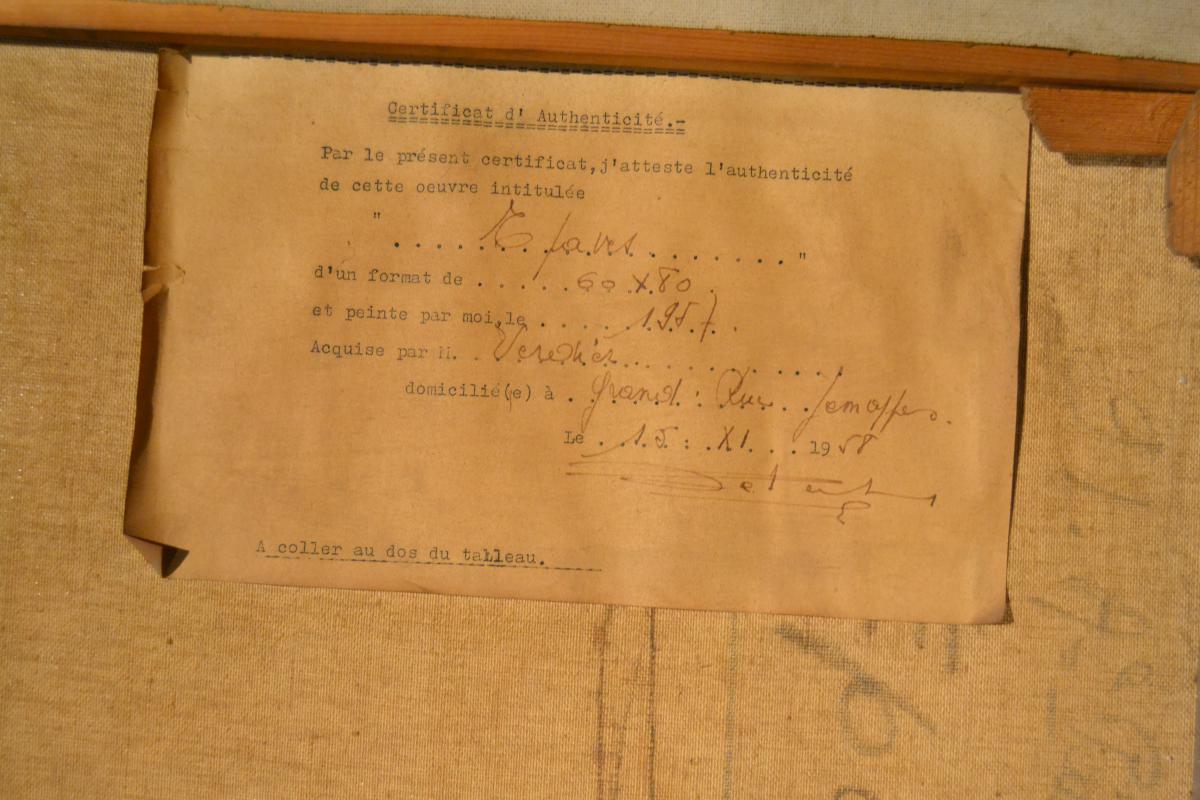 Certificat d' Authenticité.-
Par le présent certificat, j'atteste l'authenticité
de cette oeuvre intitulée
" ..... Epaves ......... "
d'un format de ..... 60 x 80 .
et peinte par moi, le ..... 1957 .
Acquise par M. .
domicilié(e) à . Grand' Rue . Jemappes .
Le . 15 : . XI . . . 1958
A coller au dos du tableau.